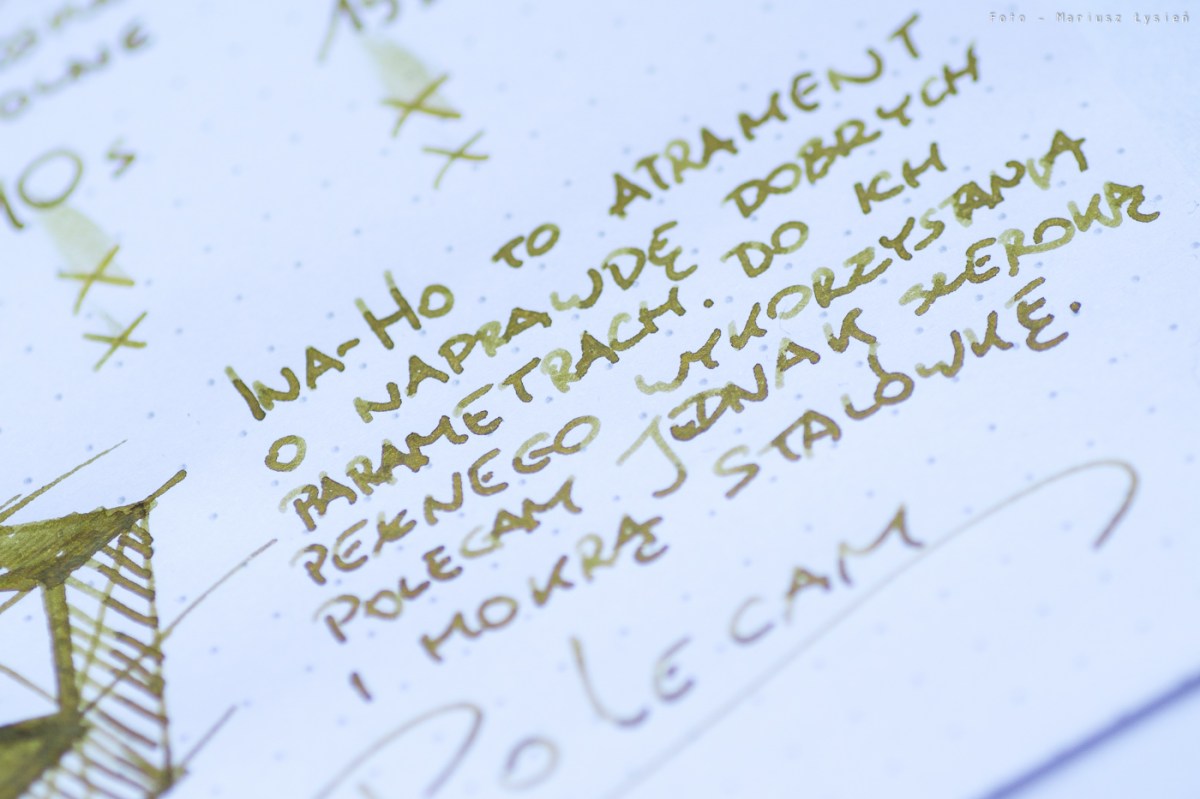 Foto - Mariusz Łysień
OLNE
10 s
INA-HO TO ATRAMENT
O NAPRAWDĘ DOBRYCH
PARAMETRACH. DO ICH
PEŁNEGO WYKORZYSTANIA
POLECAM JEDNAK SZEROKĄ
I MOKRĄ STALÓWKĘ.
POLECAM